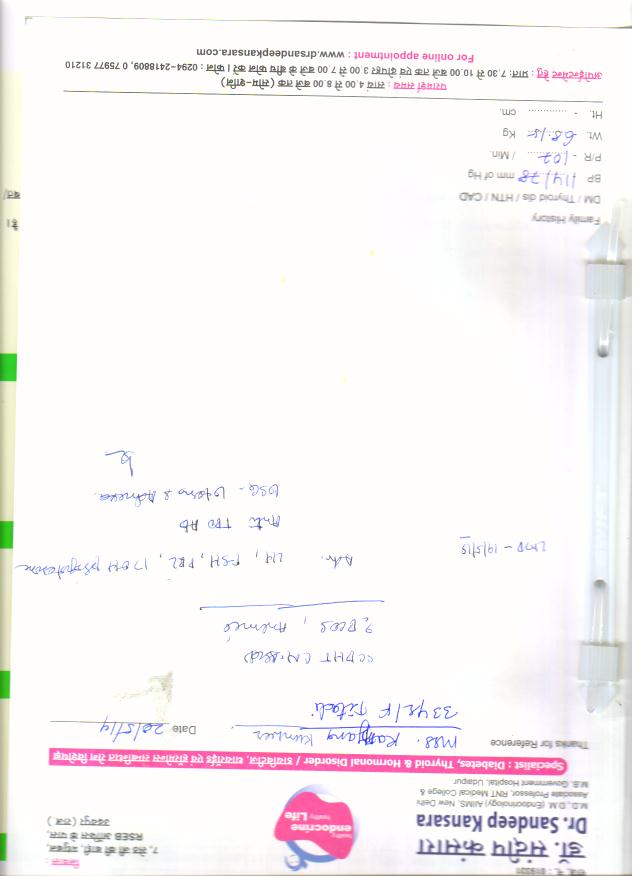 डॉ. संदीप कंसारा
Dr. Sandeep Kansara
M.D., D.M. (Endocrinology) AIIMS, New Delhi
Associate Professor, RNT Medical College &
M.B. Government Hospital, Udaipur
healthy
endocrine
healthy Life
निवास :
7, सेठ जी की बाड़ी, मधुबन,
RSEB ऑफिस के पास,
उदयपुर (राज.)
Specialist : Diabetes, Thyroid & Hormonal Disorder / डायबिटीज, थायराईड एवं हॉर्मोन्स सम्बन्धित रोग विशेषज्ञ
Thanks for Reference
Mrs. Kunwer
Date 20/5/14
33 yr/F
? PCOS, Anemia
Adv. LH, FSH, PRL, 17OH
LMP - 19/5/15
Anti TPO Ab
USG - Uterus & Adnexa
Family History
DM / Thyroid dis / HTN / CAD
BP 114/78 mm of Hg
P/R - 107 / Min.
Wt. 68.15 Kg
Ht. - cm.
परामर्श समय : सायं 4.00 से 8.00 बजे तक (सोम-शनि)
अपॉईन्टमेन्ट हेतु : प्रातः 7.30 से 10.00 बजे तक एवं दोपहर 3.00 से 7.00 बजे के बीच फोन करें। फोन : 0294-2418809, 0 75977 31210
For online appointment : www.drsandeepkansara.com